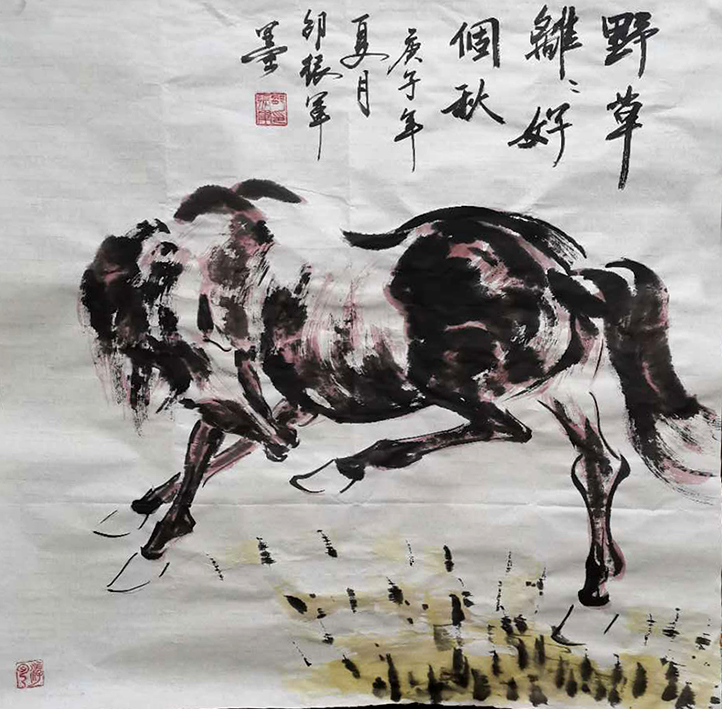 野草
離〻好
個秋
庚子年
夏月
邵振軍
墨